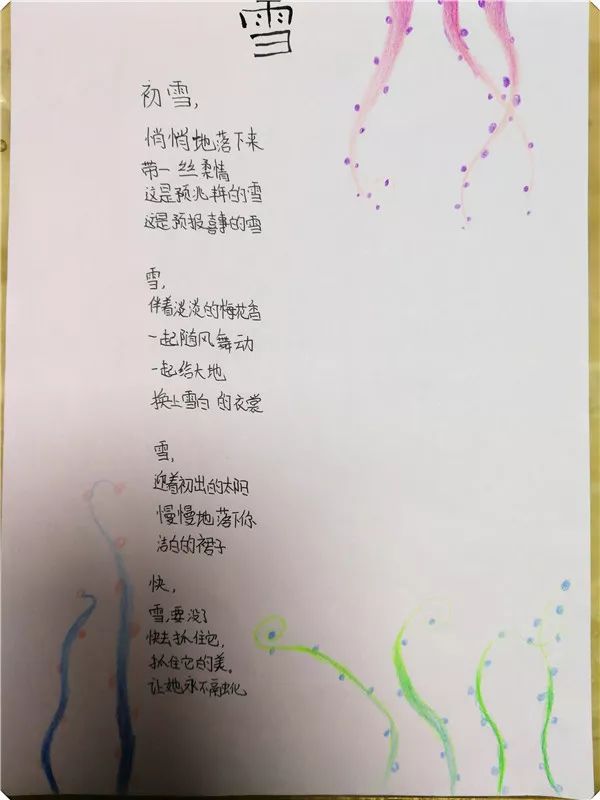 雪
初雪,
悄悄地落下来
带一丝柔情
这是预兆丰年的雪
这是预报喜事的雪
雪,
伴着淡淡的梅花香
一起随风舞动
一起给大地
换上雪白的衣裳
雪,
迎着初出的太阳
慢慢地落下你
洁白的裙子
快,
雪要没了
快去抓住它,
抓住它的美。
让她永不融化